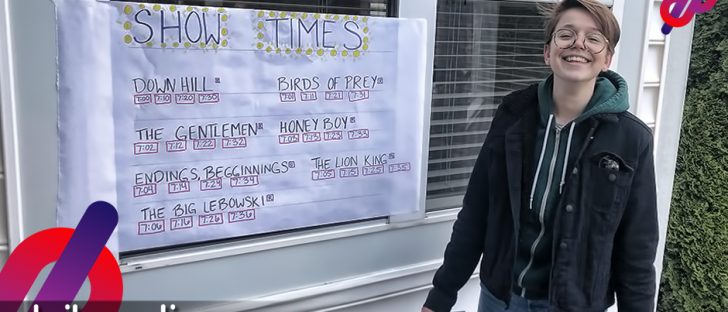 SHOW TIMES
DOWN HILL
7:00 7:10 7:20 7:30
BIRDS OF PREY
7:01 7:11 7:21 7:31
THE GENTLEMEN
7:02 7:12 7:22 7:32
HONEY BOY
7:03 7:13 7:23 7:33
ENDINGS, BEGGINNINGS
7:04 7:14 7:24 7:34
THE LION KING
7:05 7:15 7:25 7:35
THE BIG LEBOWSKI
7:06 7:16 7:26 7:36